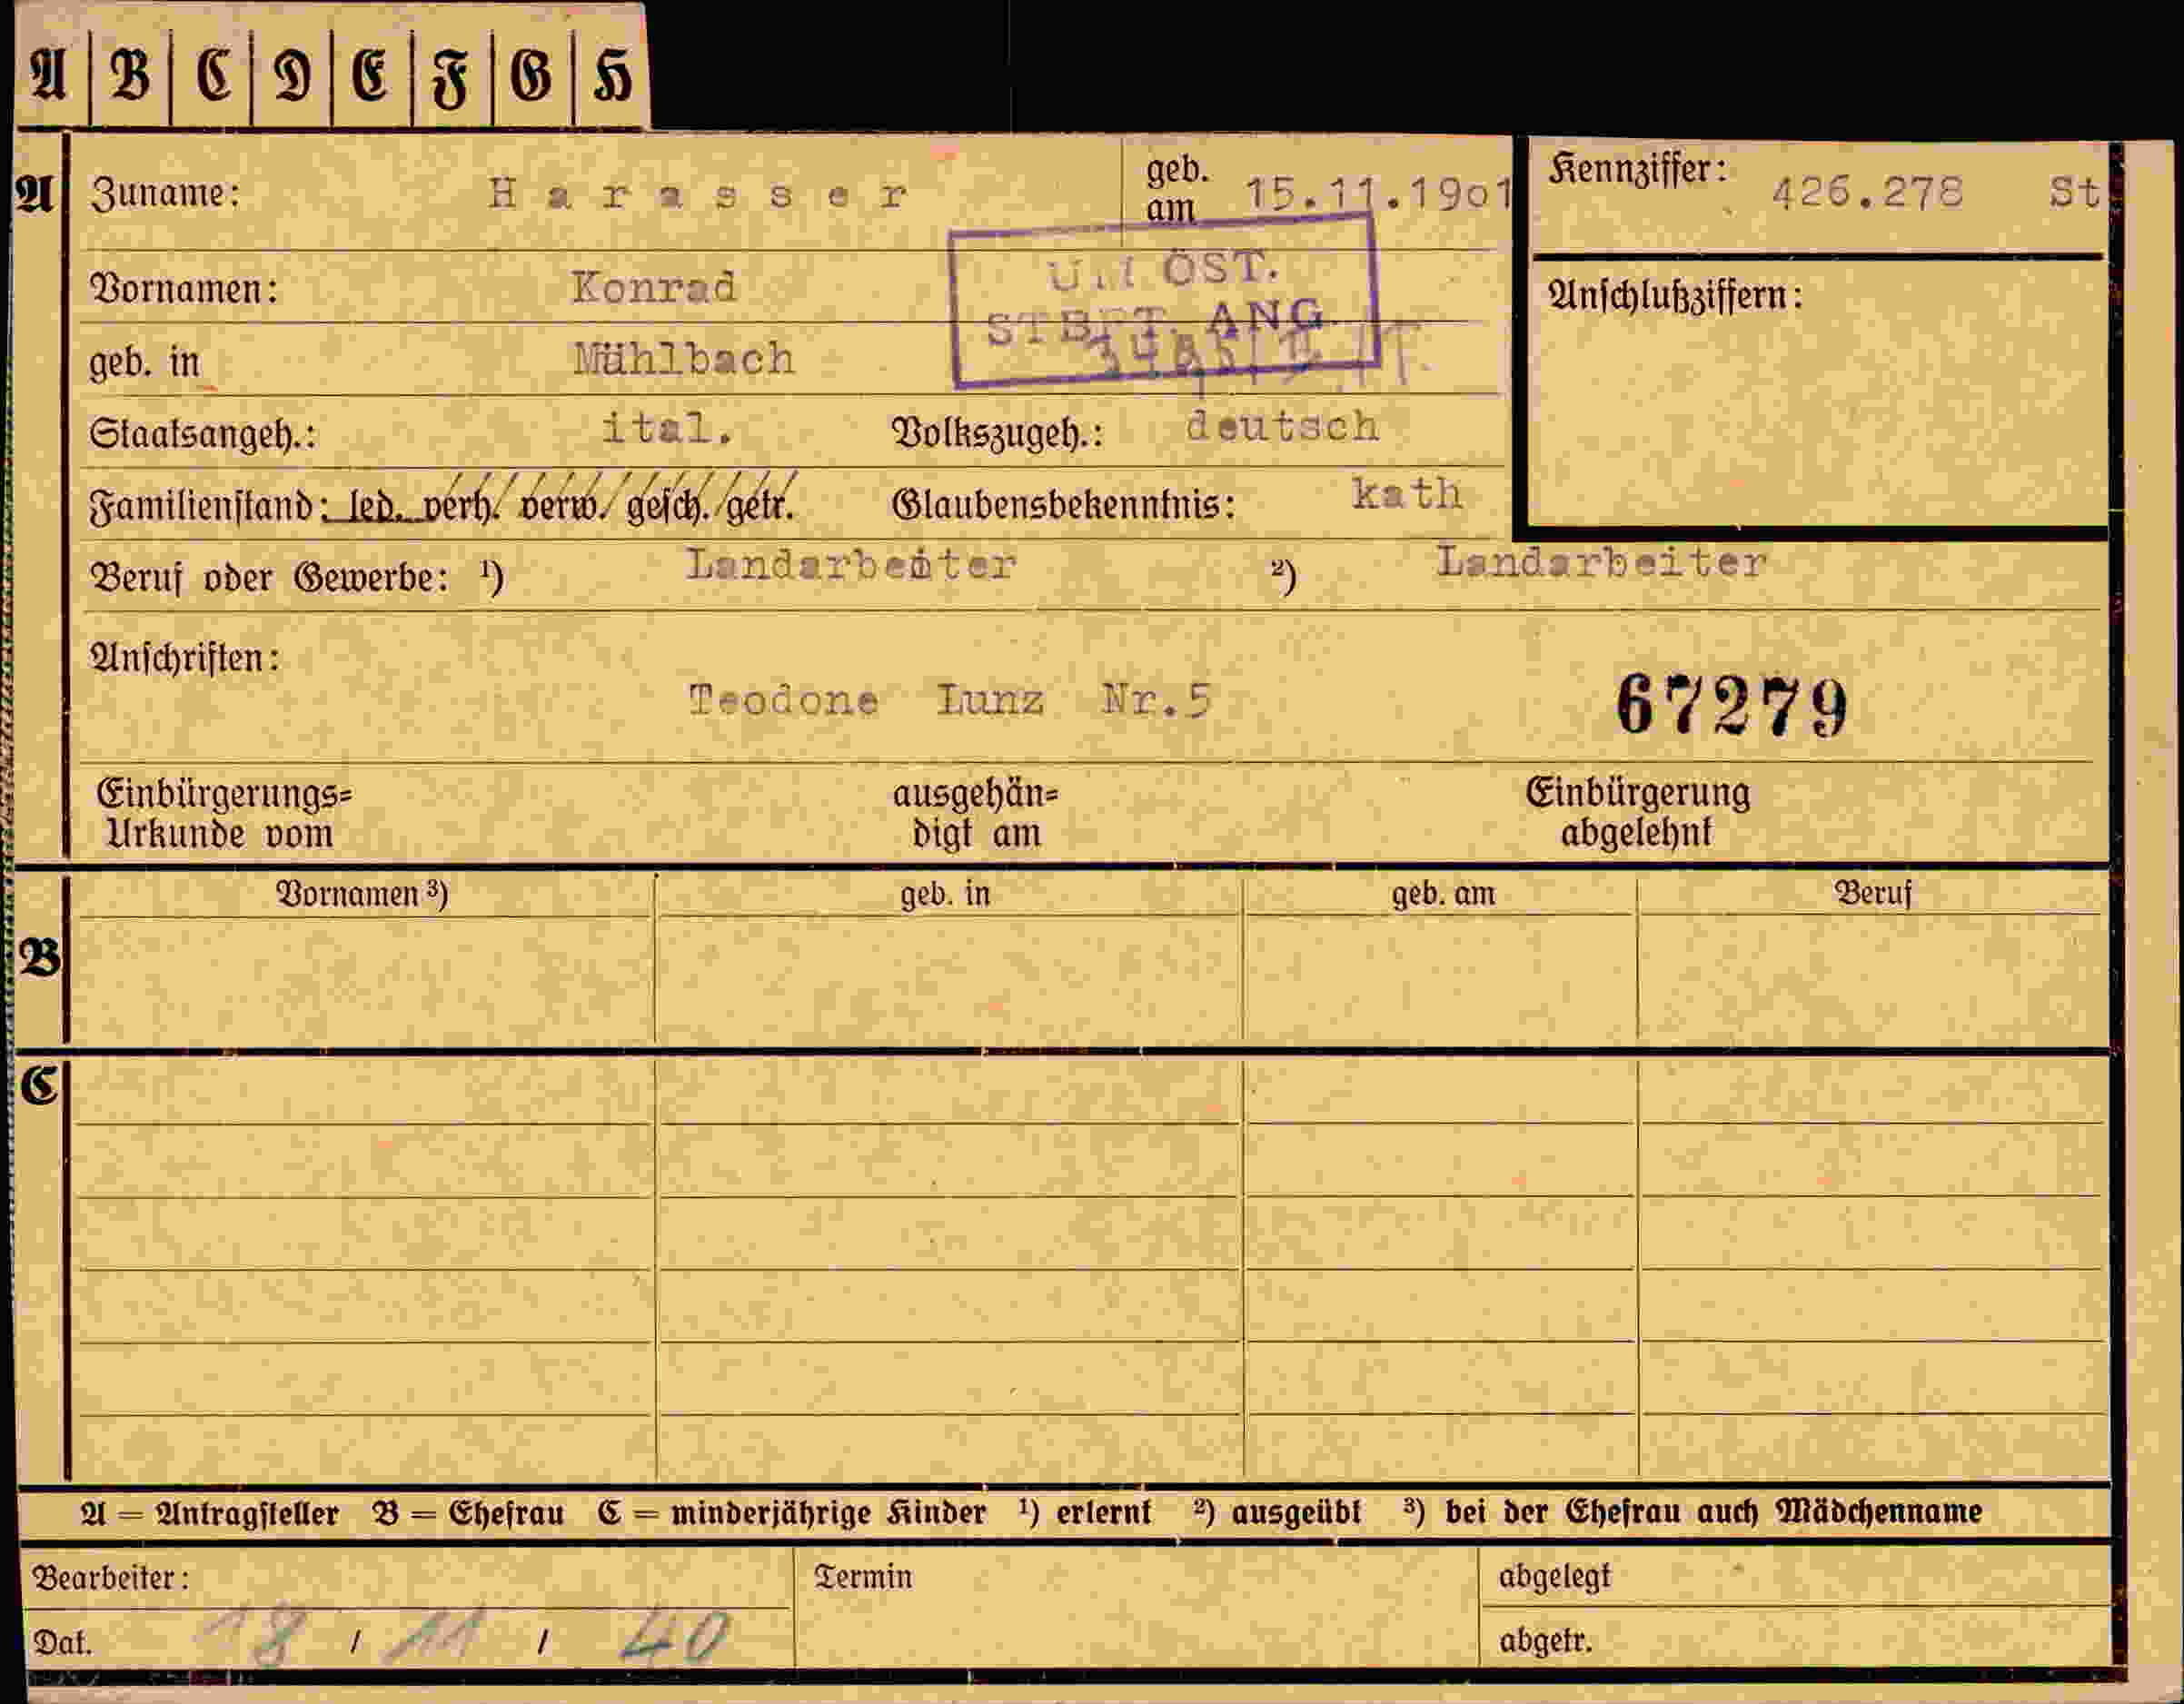 A B C D E F G H
A Zuname: Harasser geb. am 15.11.19o1 Kennziffer: 426.278 St
Vornamen: Konrad
ÖST.
STBFT. ANG.
Anschlußziffern:
geb. in Mühlbach
Staatsangeh.: ital. Volkszugeh.: deutsch
Familienstand: led. verh. verw. gesch. getr. Glaubensbekenntnis: kath
Beruf oder Gewerbe: ¹) Landarbeiter ²) Landarbeiter
Anschriften:
Teodone Lunz Nr.5 67279
Einbürgerungs= ausgehän= Einbürgerung
Urkunde vom digt am abgelehnt
Vornamen ³) geb. in geb. am Beruf
B
C
A = Antragsteller B = Ehefrau C = minderjährige Kinder ¹) erlernt ²) ausgeübt ³) bei der Ehefrau auch Mädchenname
Bearbeiter: Termin abgelegt
Dat. 18 / 11 / 40 abgetr.